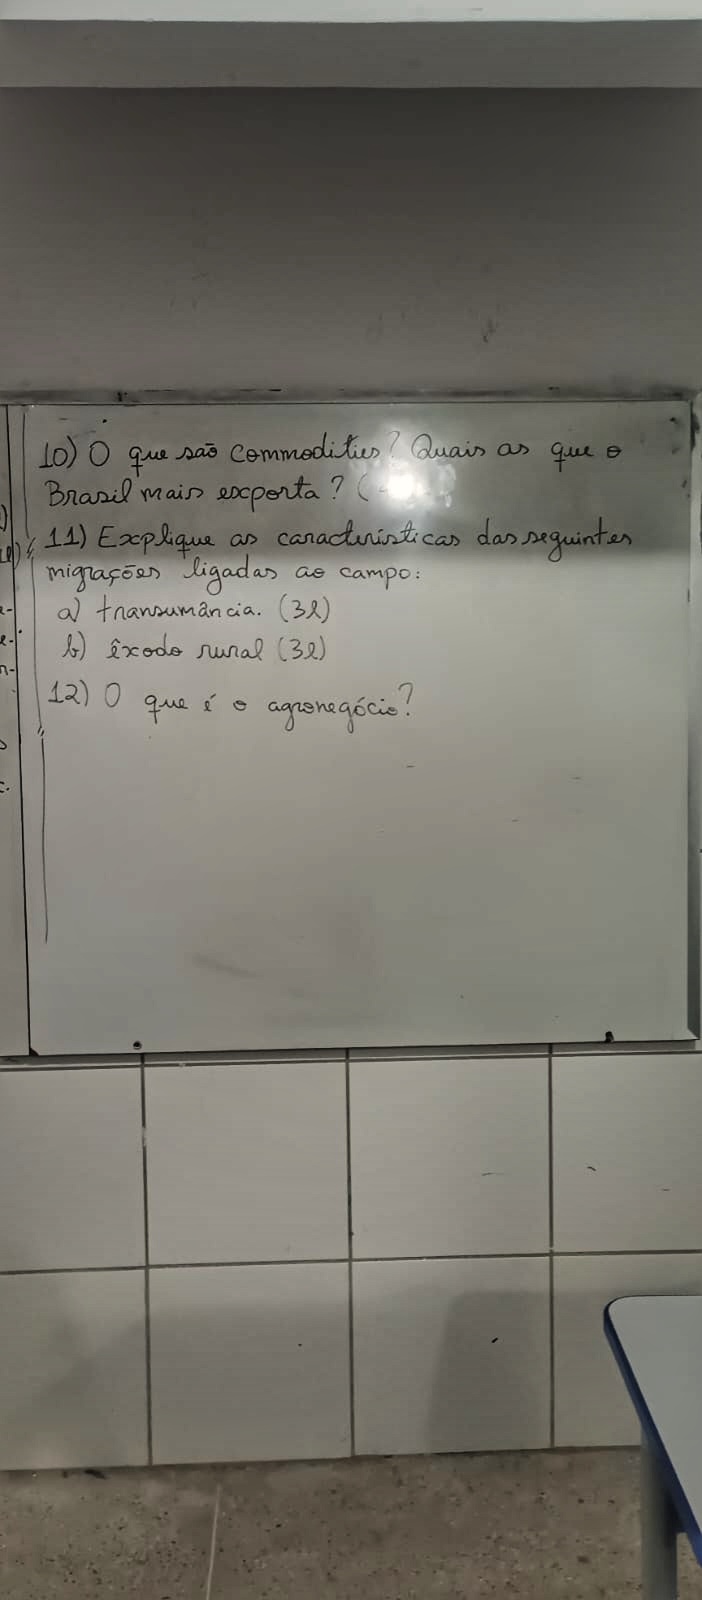 10) O que são commodities? Quais as que o
Brasil mais exporta? (
11) Explique as características das seguintes
migrações ligadas ao campo:
a) transumância. (3l)
b) êxodo rural (3l)
12) O que é o agronegócio?